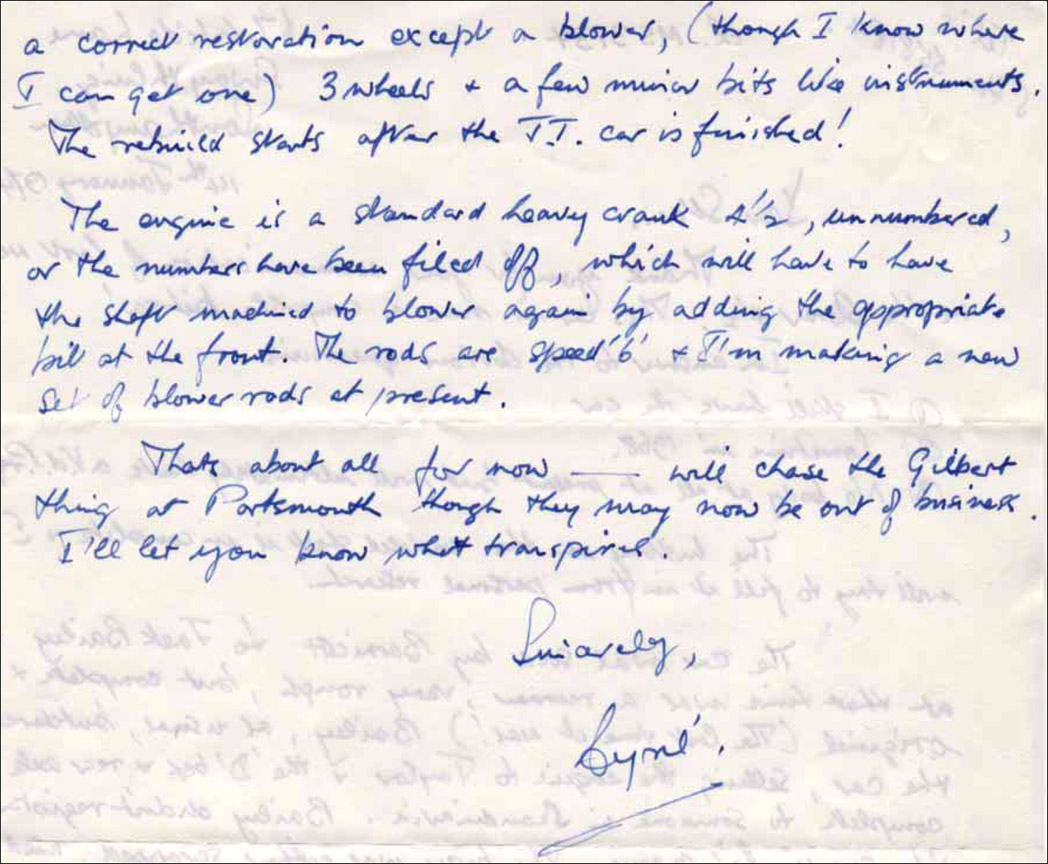 a correct restoration except a blower, (though I know where
I can get one) 3 wheels + a few minor bits like instruments.
The rebuild starts after the T.T. car is finished!
The engine is a standard heavy crank 4½, unnumbered,
or the numbers have been filed off, which will have to have
the shaft machined to blower again by adding the appropriate
bit at the front. The rods are speed '6' + I'm making a new
set of blower rods at present.
Thats about all for now — will chase the Gilbert
thing at Portsmouth though they may now be out of business.
I'll let you know what transpires.
Sincerely,